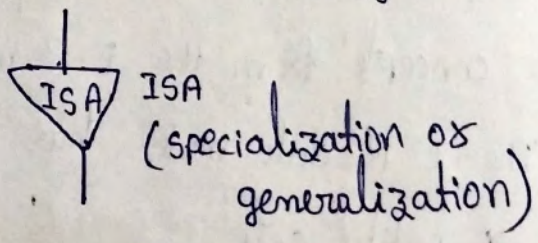 ISA ISA
(specialization or
generalization)